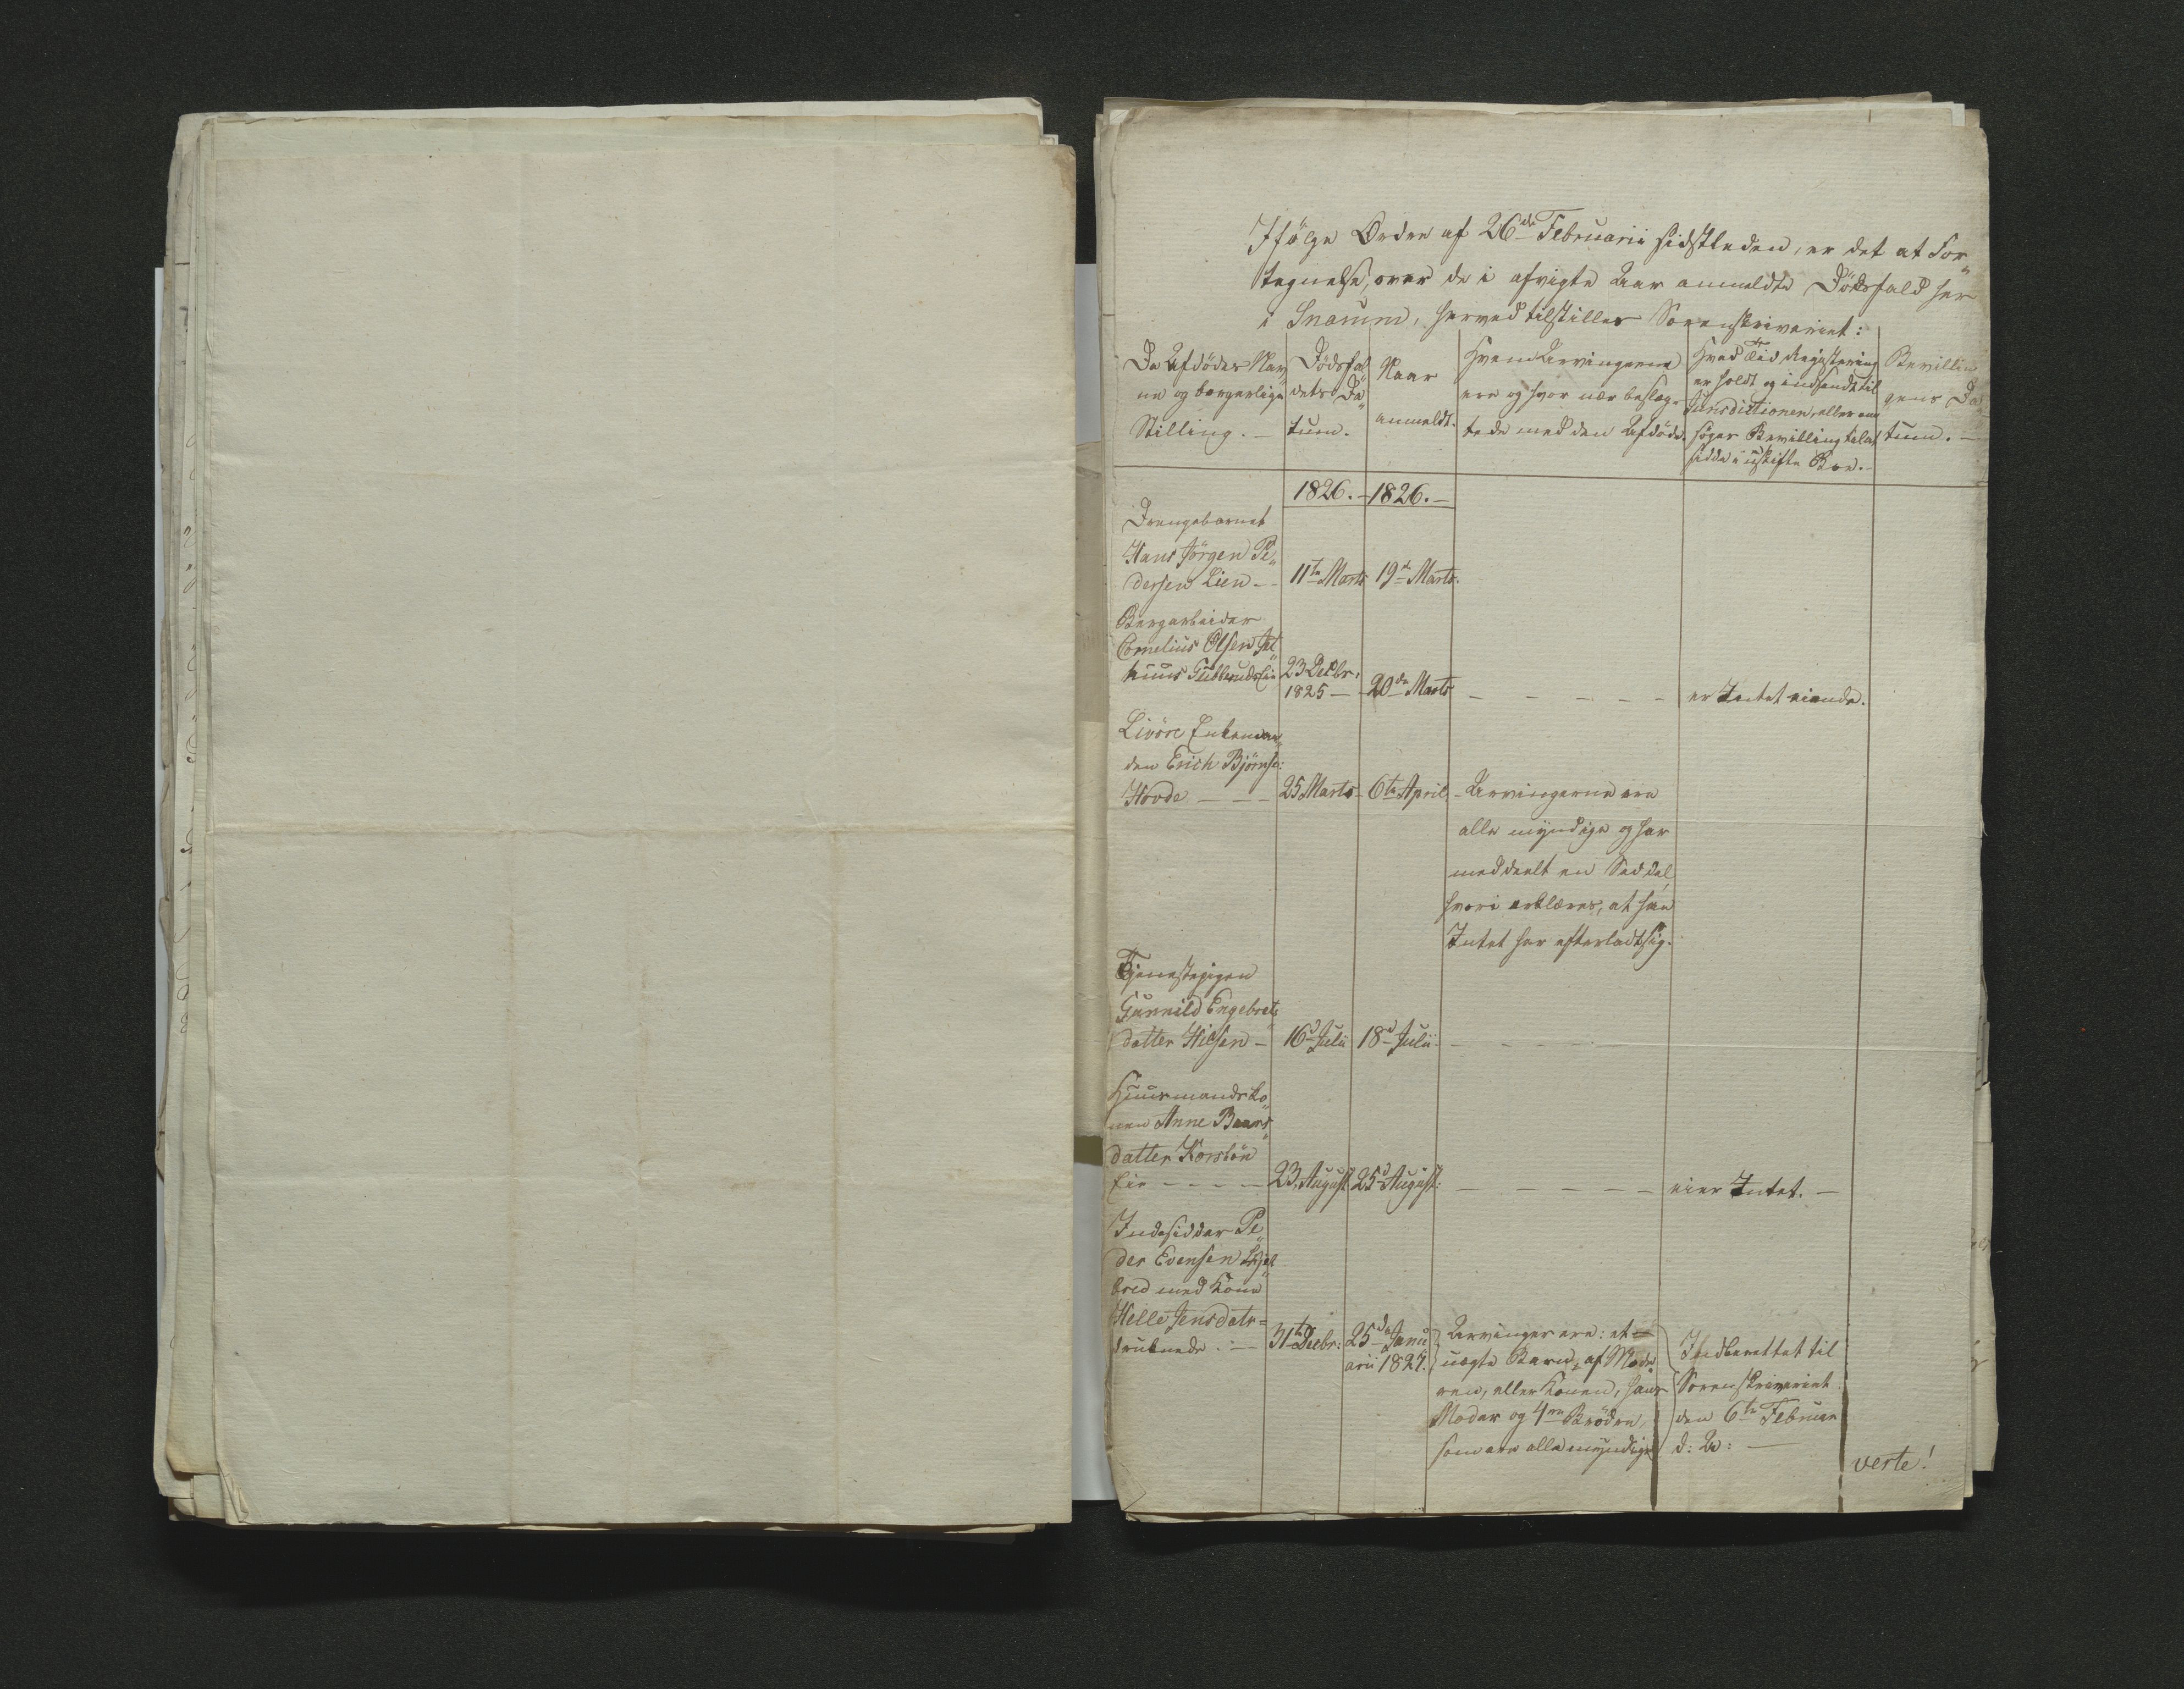 Ifölge Ordre af 26de Februarii sidstleden, er det at For„
tegnelse, over de i afvigte Aar anmeldte Dödsfald her
i Snarum, herved tilstilles Sorenskriveriet:
De Afdödes Nav„
ne og borgerlige
Stilling. —
Dödsfal„
dets Da„
tum.
Naar
anmeldt.
Hvem Arvingerne
ere og hvor nær beslæg„
tede med den Afdöde.
Hvad Tid Registering
er holdt og indsendt til
Jurisdictionen, eller om
söges Bevilling til at
sidde i uskifte Boe.
Bevillin„
gens Da„
tum. —
1826. — 1826. —
Drengebarnet
Hans Jörgen Pe„
dersen Lien — 11te Marts 19de Marts.
Bergarbeider
Cornelius Olsen
23 Decbr:
1825 — 20de Marts — — — — — er Intet eiende.
Enkeman„
den Erich Björnse:
Hovde — — — 25 Marts — 6te April — Arvingerne ere
alle myndige og har
meddeelt en Seddel,
hvori erklæres, at han
Intet har efterladt sig.
Tjenestepigen
Gunnild Engebrets„
datter Hilsen — 16d Julii 18d Julii. — — — —
Huusmandsko„
nen Anne Baars„
datter
Eie — — — — 23. August 25d August: — — — — — eier Intet. —
Indesidder Pe„
der Evensen
bred med Kone
Helle Jensdatr =
druknede. — 31te Decbr: 25de Janu„
arii 1827.
Arvinger ere: et
uægte Barn, af Mode„
ren, eller Konen, hans
Moder og 4re Brödre,
som ere alle myndige
Indberettet til
Sorenskriveriet
den 6te Februar
d: A: —
verte!